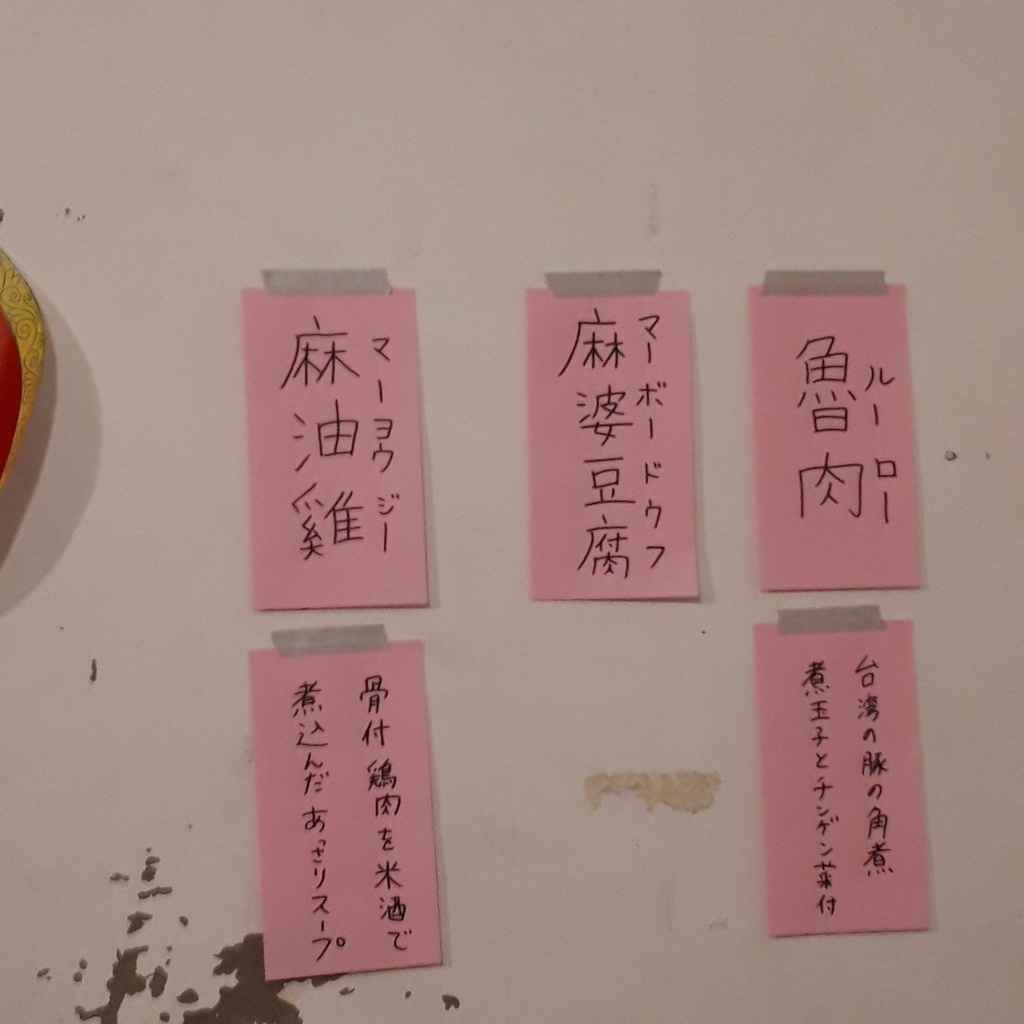 魯肉
ルーロー
台湾の豚の角煮
煮玉子とチンゲン菜付
麻婆豆腐
マーボードウフ
麻油雞
マーヨウジー
骨付鶏肉を米酒で
煮込んだあっさりスープ